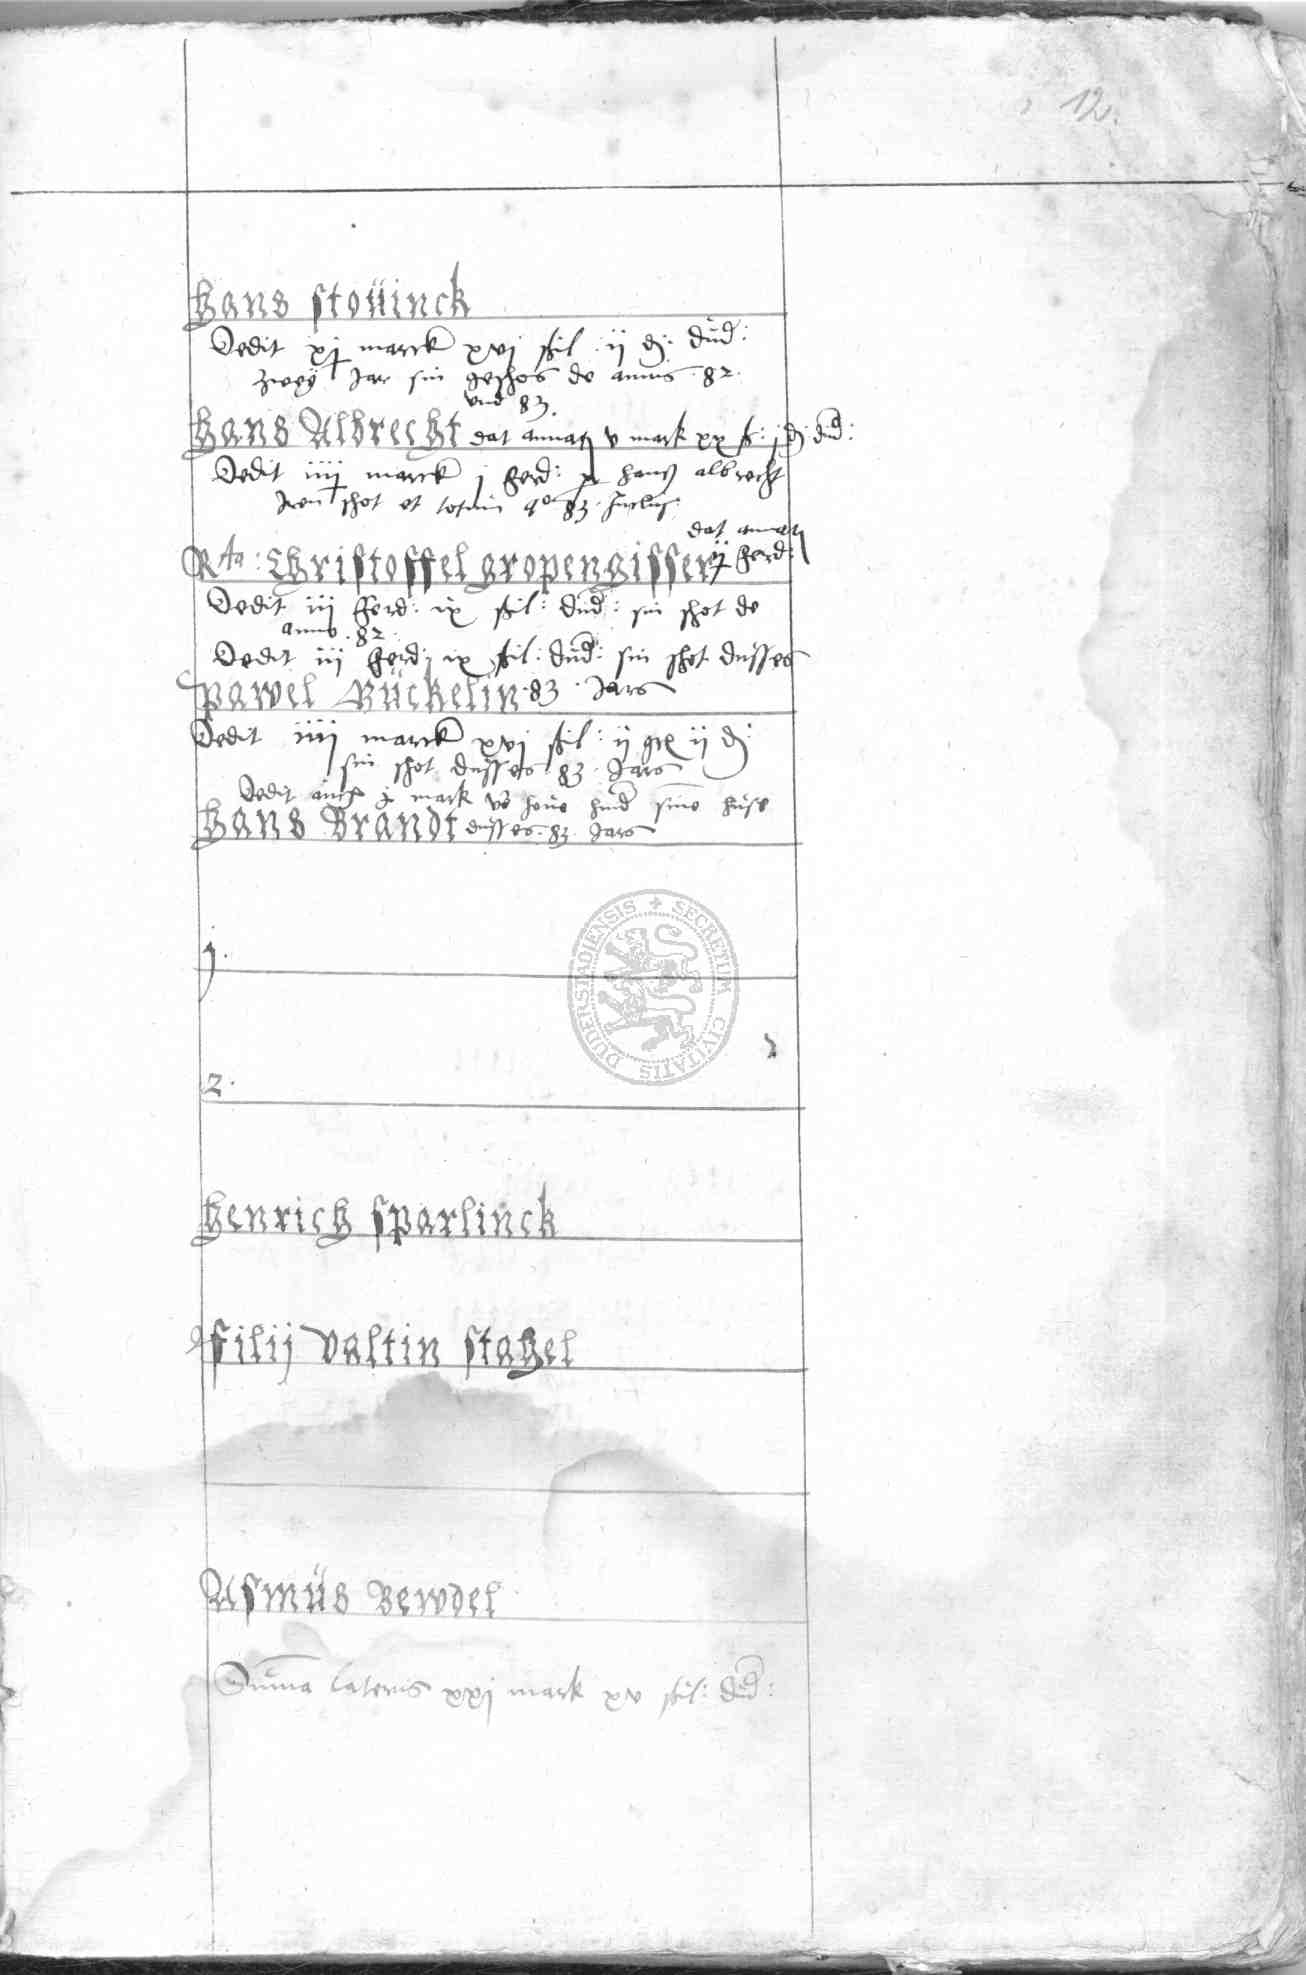 12.
Hans stoüinck
Dedit xj marck xvj ßil : ij d : dud :
zwey Jar sin geschos de annis 82.
vnd 83.
Hans Albrecht dat annatim v mark xx ß : j d dud :
Dedit iiij marck j ferd : hans albrecht
Jren schot et totum 83. Jnclus.
dat annatim
Rta : Christoffel gropengisser ij ferd :
Dedit iij ferd : ix ßil : dud : sin schot de
anno . 82
Dedit iij ferd : ix ßil : dud : sin schot dusses
pawel Bückelin . 83 . Jars
Dedit iiij marck xvj ßil : ij ij d :
sin schot dusses . 83 . Jars
Dedit auch mark vor hind sine huse
Hans Brandt dusses . 83 . Jars
j.
2.
Henrich sparlinck
filij valtin stahel
Asmüs Bewdel
Summa lateris xxj mark xv ßil : dud :
SECRETUM CIVITATIS DUDERSTADIENSIS